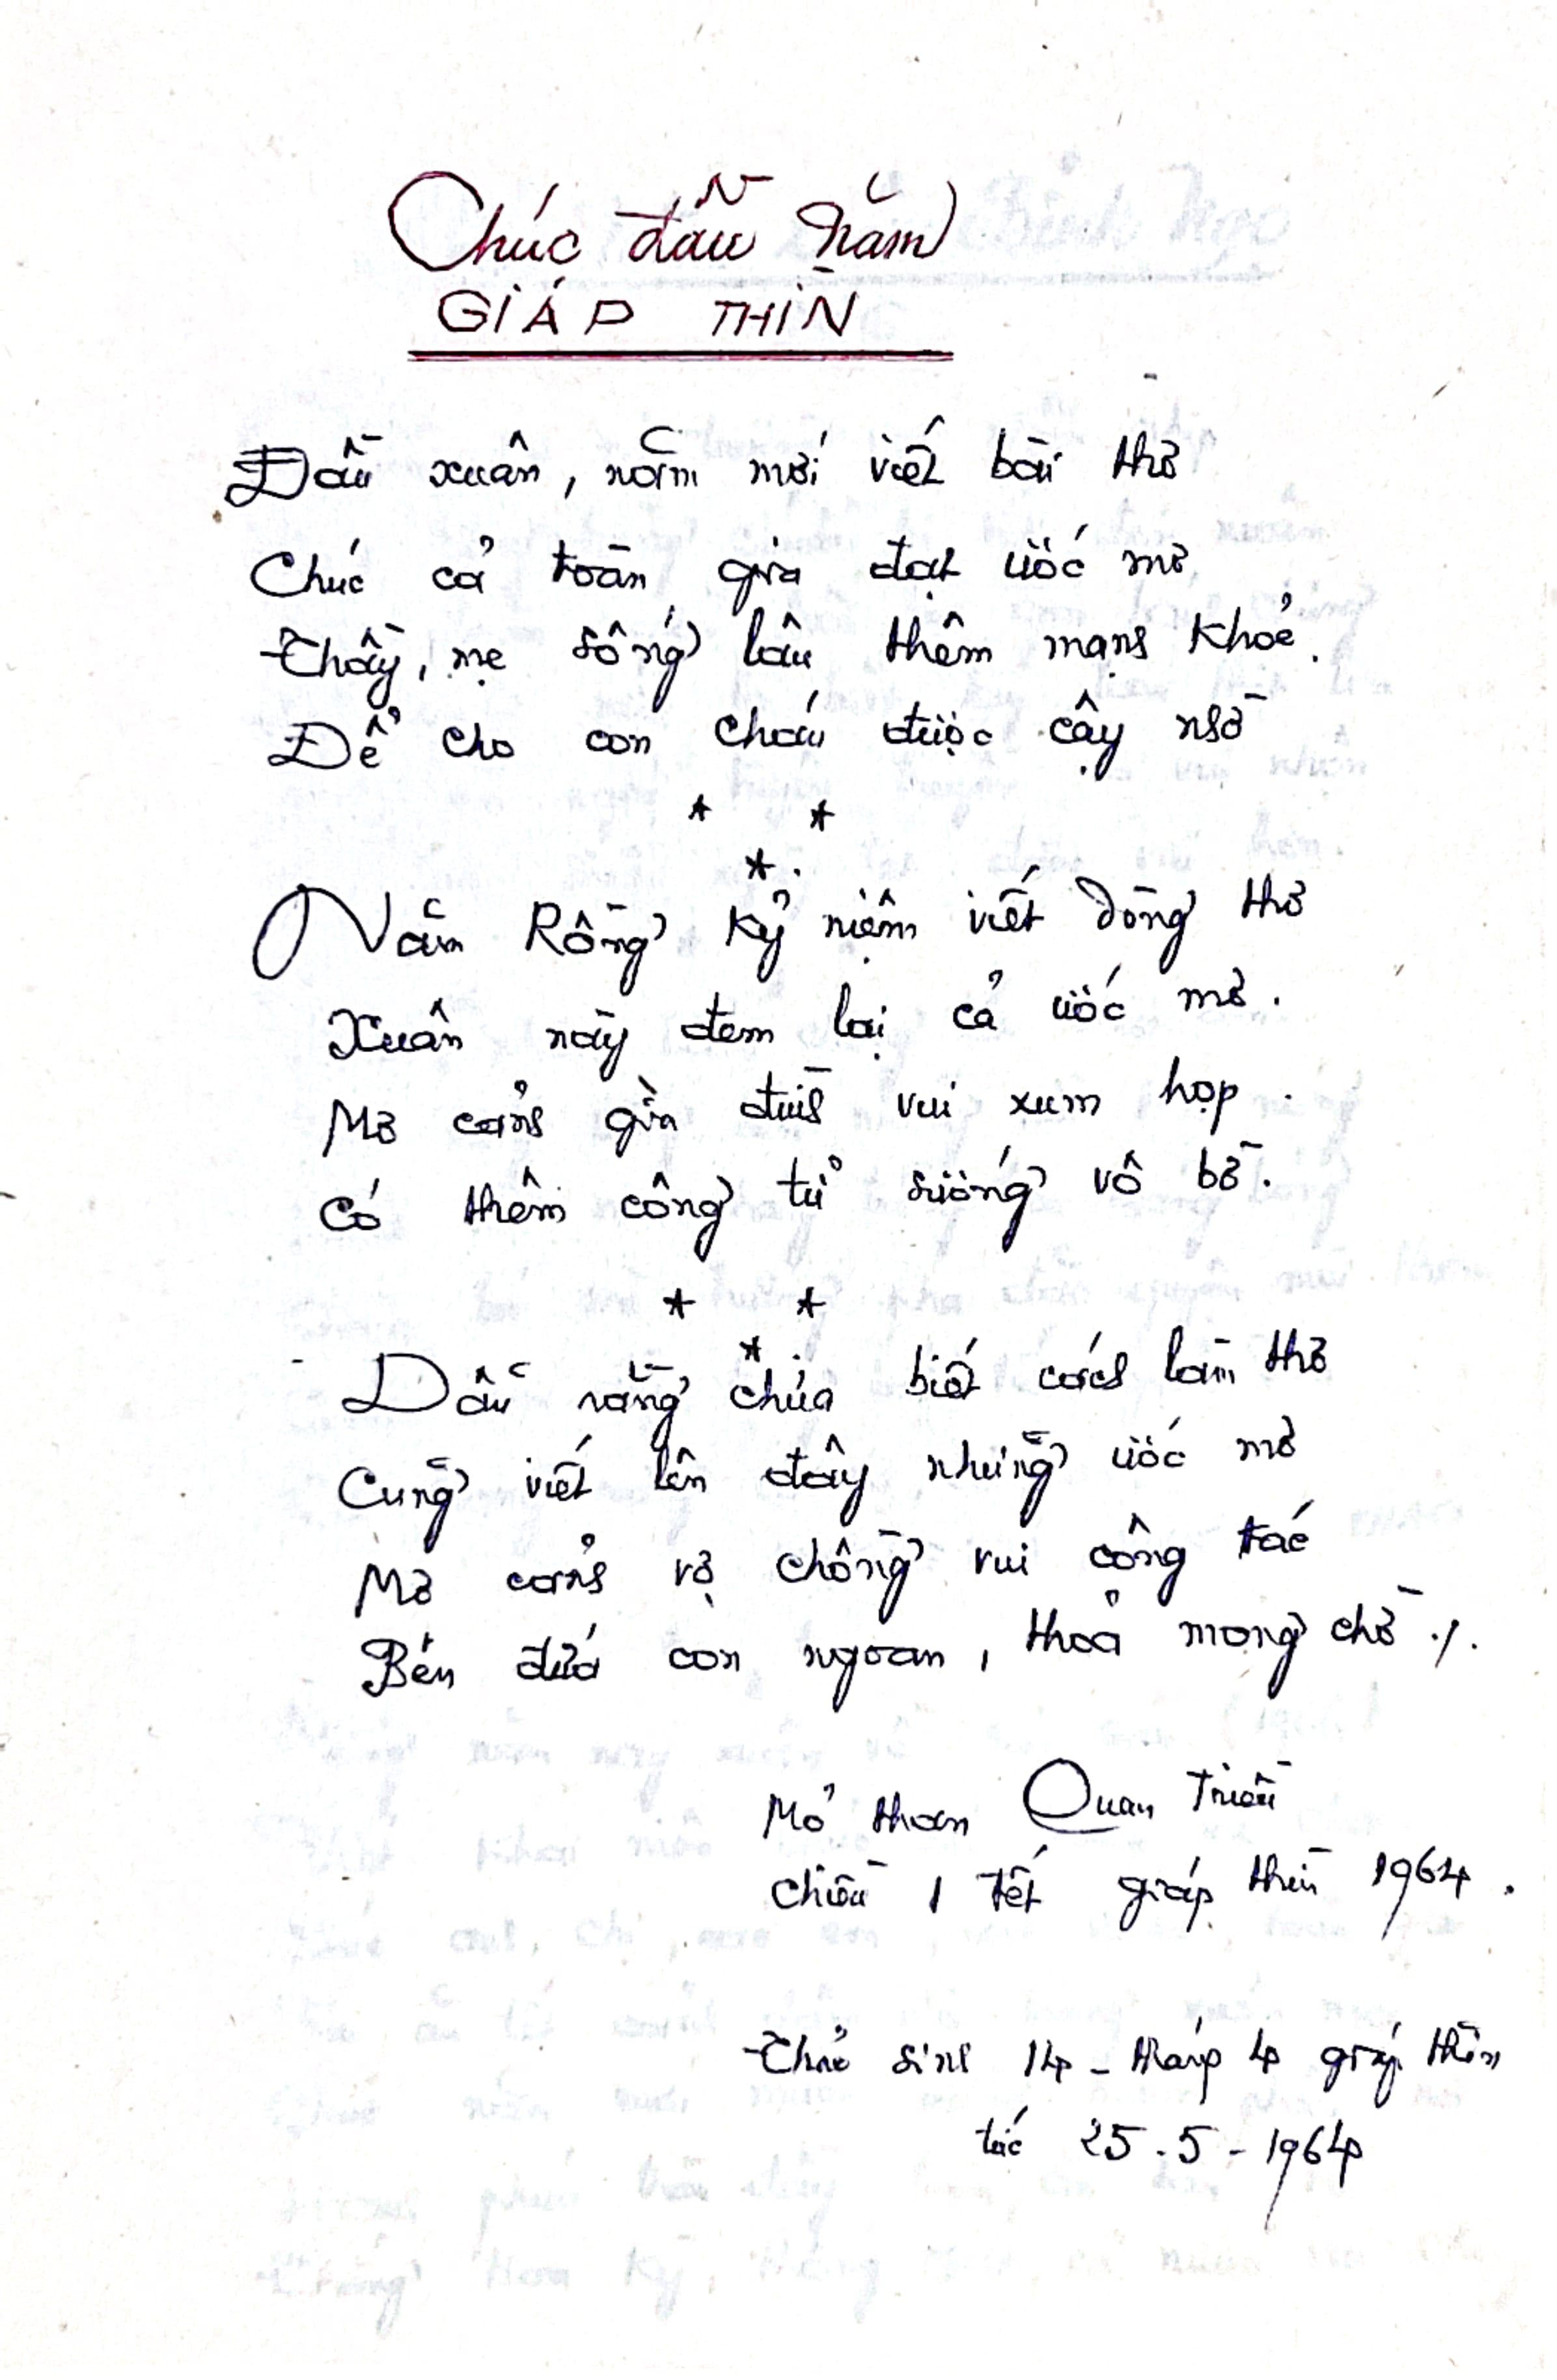 Chúc đầu năm
GIÁP THÌN
Đầu xuân, năm mới viết bài thơ
Chúc cả toàn gia đạt ước mơ
Thầy, mẹ sống lâu thêm mạnh khoẻ.
Để cho con cháu được cậy nhờ
* *
*
Năm Rồng kỷ niệm viết dòng thơ
Xuân này đem lại cả ước mơ.
Mơ cảnh gia đình vui xum họp.
Có thêm công tử sướng vô bờ.
* *
*
Dẫu rằng chửa biết cách làm thơ
Cũng viết lên đây những ước mơ
Mơ cảnh vợ chồng vui công tác
Bên đứa con ngoan, thoả mong chờ ./.
Mỏ than Quan Triều
Chiều 1 Tết giáp thìn 1964.
Thuỷ sinh 14 - tháng 4 giáp thìn
tức 25-5-1964